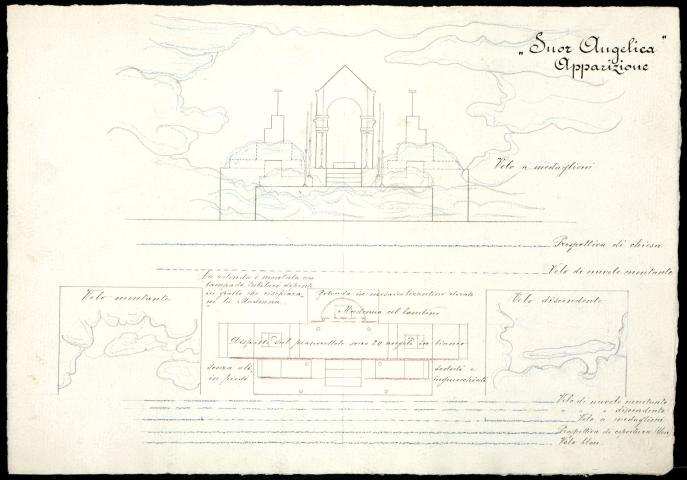 „Suor Angelica"
Apparizione
Velo a medaglioni
Prospettiva di chiesa
Velo di nuvole montante
La rotonda è montata con
lampade tubolari dipinte
in giallo che rischiara-
no la Madonna.
Rotonda in mosaico bizantino dorato
Madonna col bambino
Velo montante
Velo discendente
Disposti sul praticabile sono 20 angeli in bianco
senza ali,
in piedi
seduti e
inginocchiati
Velo di nuvole montante
" " " discendente
Velo a medaglioni
Prospettiva di copertura
Velo bleu